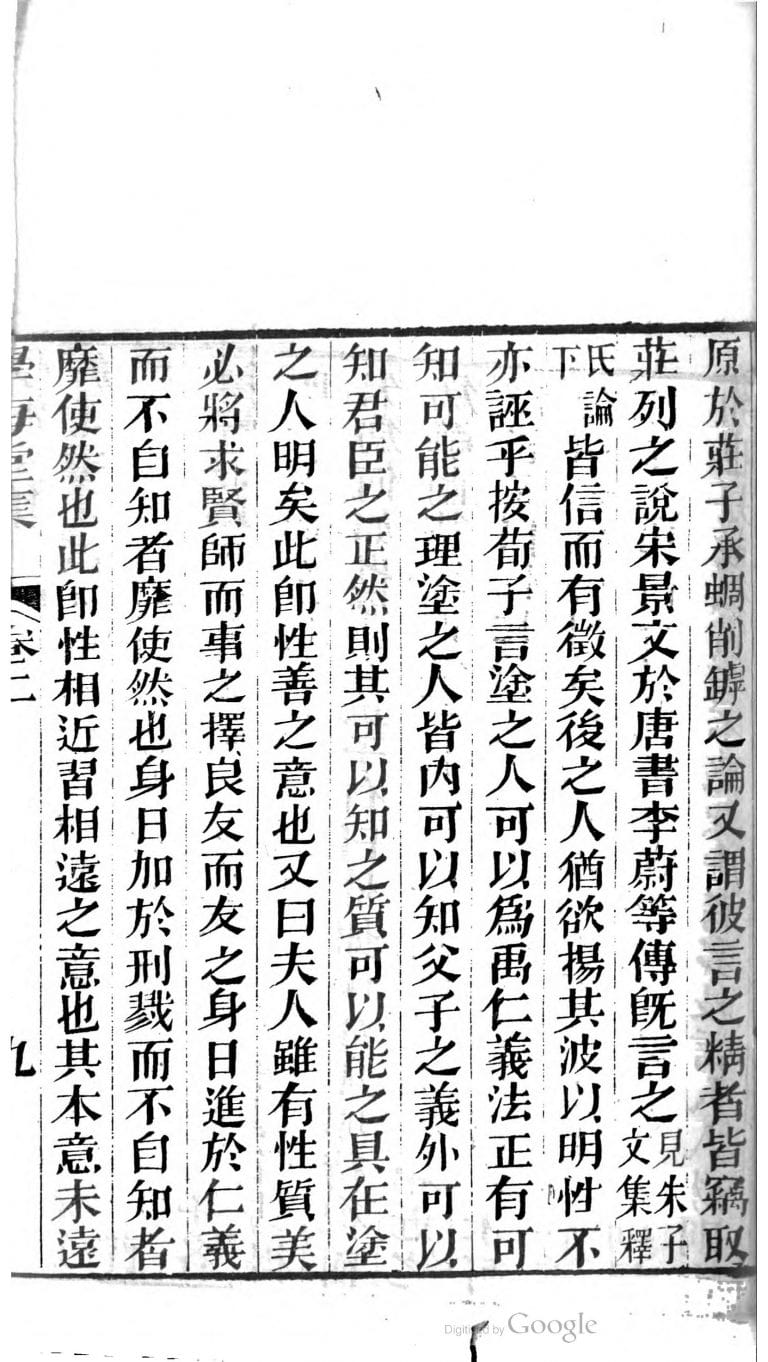 原於莊子承蜩削鐻之論又謂彼言之精者皆竊取
莊列之說宋景文於唐書李蔚等傳旣言之見朱子文集釋
氏論下皆信而有徵矣後之人猶欲揚其波以明性不
亦誣乎按荀子言塗之人可以爲禹仁義法正有可
知可能之理塗之人皆內可以知父子之義外可以
知君臣之正然則其可以知之質可以能之具在塗
之人明矣此卽性善之意也又曰夫人雖有性質美
必將求賢師而事之擇良友而友之身日進於仁義
而不自知者靡使然也身日加於刑戮而不自知者
靡使然也此卽性相近習相遠之意也其本意未遠
學海堂集 卷二 九
Digitized by Google